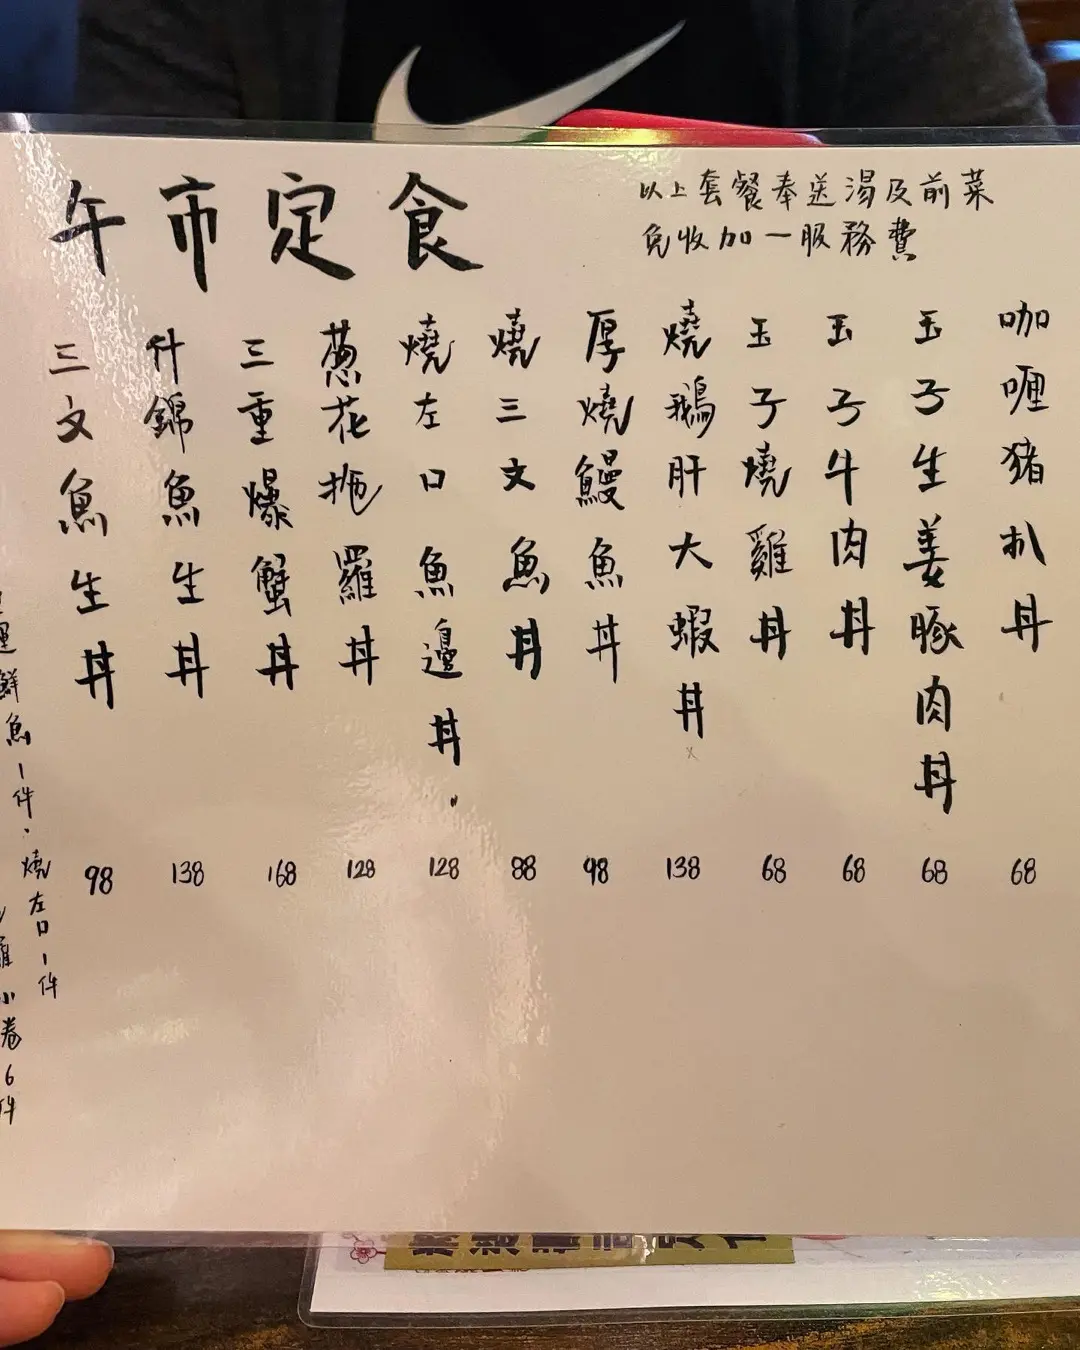 午市定食
以上套餐奉送湯及前菜
免收加一服務費
咖喱猪扒丼 68
玉子生姜豚肉丼 68
玉子牛肉丼 68
玉子燒雞丼 68
燒鵝肝大蝦丼 138
厚燒鰻魚丼 98
燒三文魚丼 88
燒左口魚邊丼 128
葱花拖羅丼 128
三重爆蟹丼 168
什錦魚生丼 138
三文魚生丼 98
燒左口1件
鮮魚1件
小卷6件